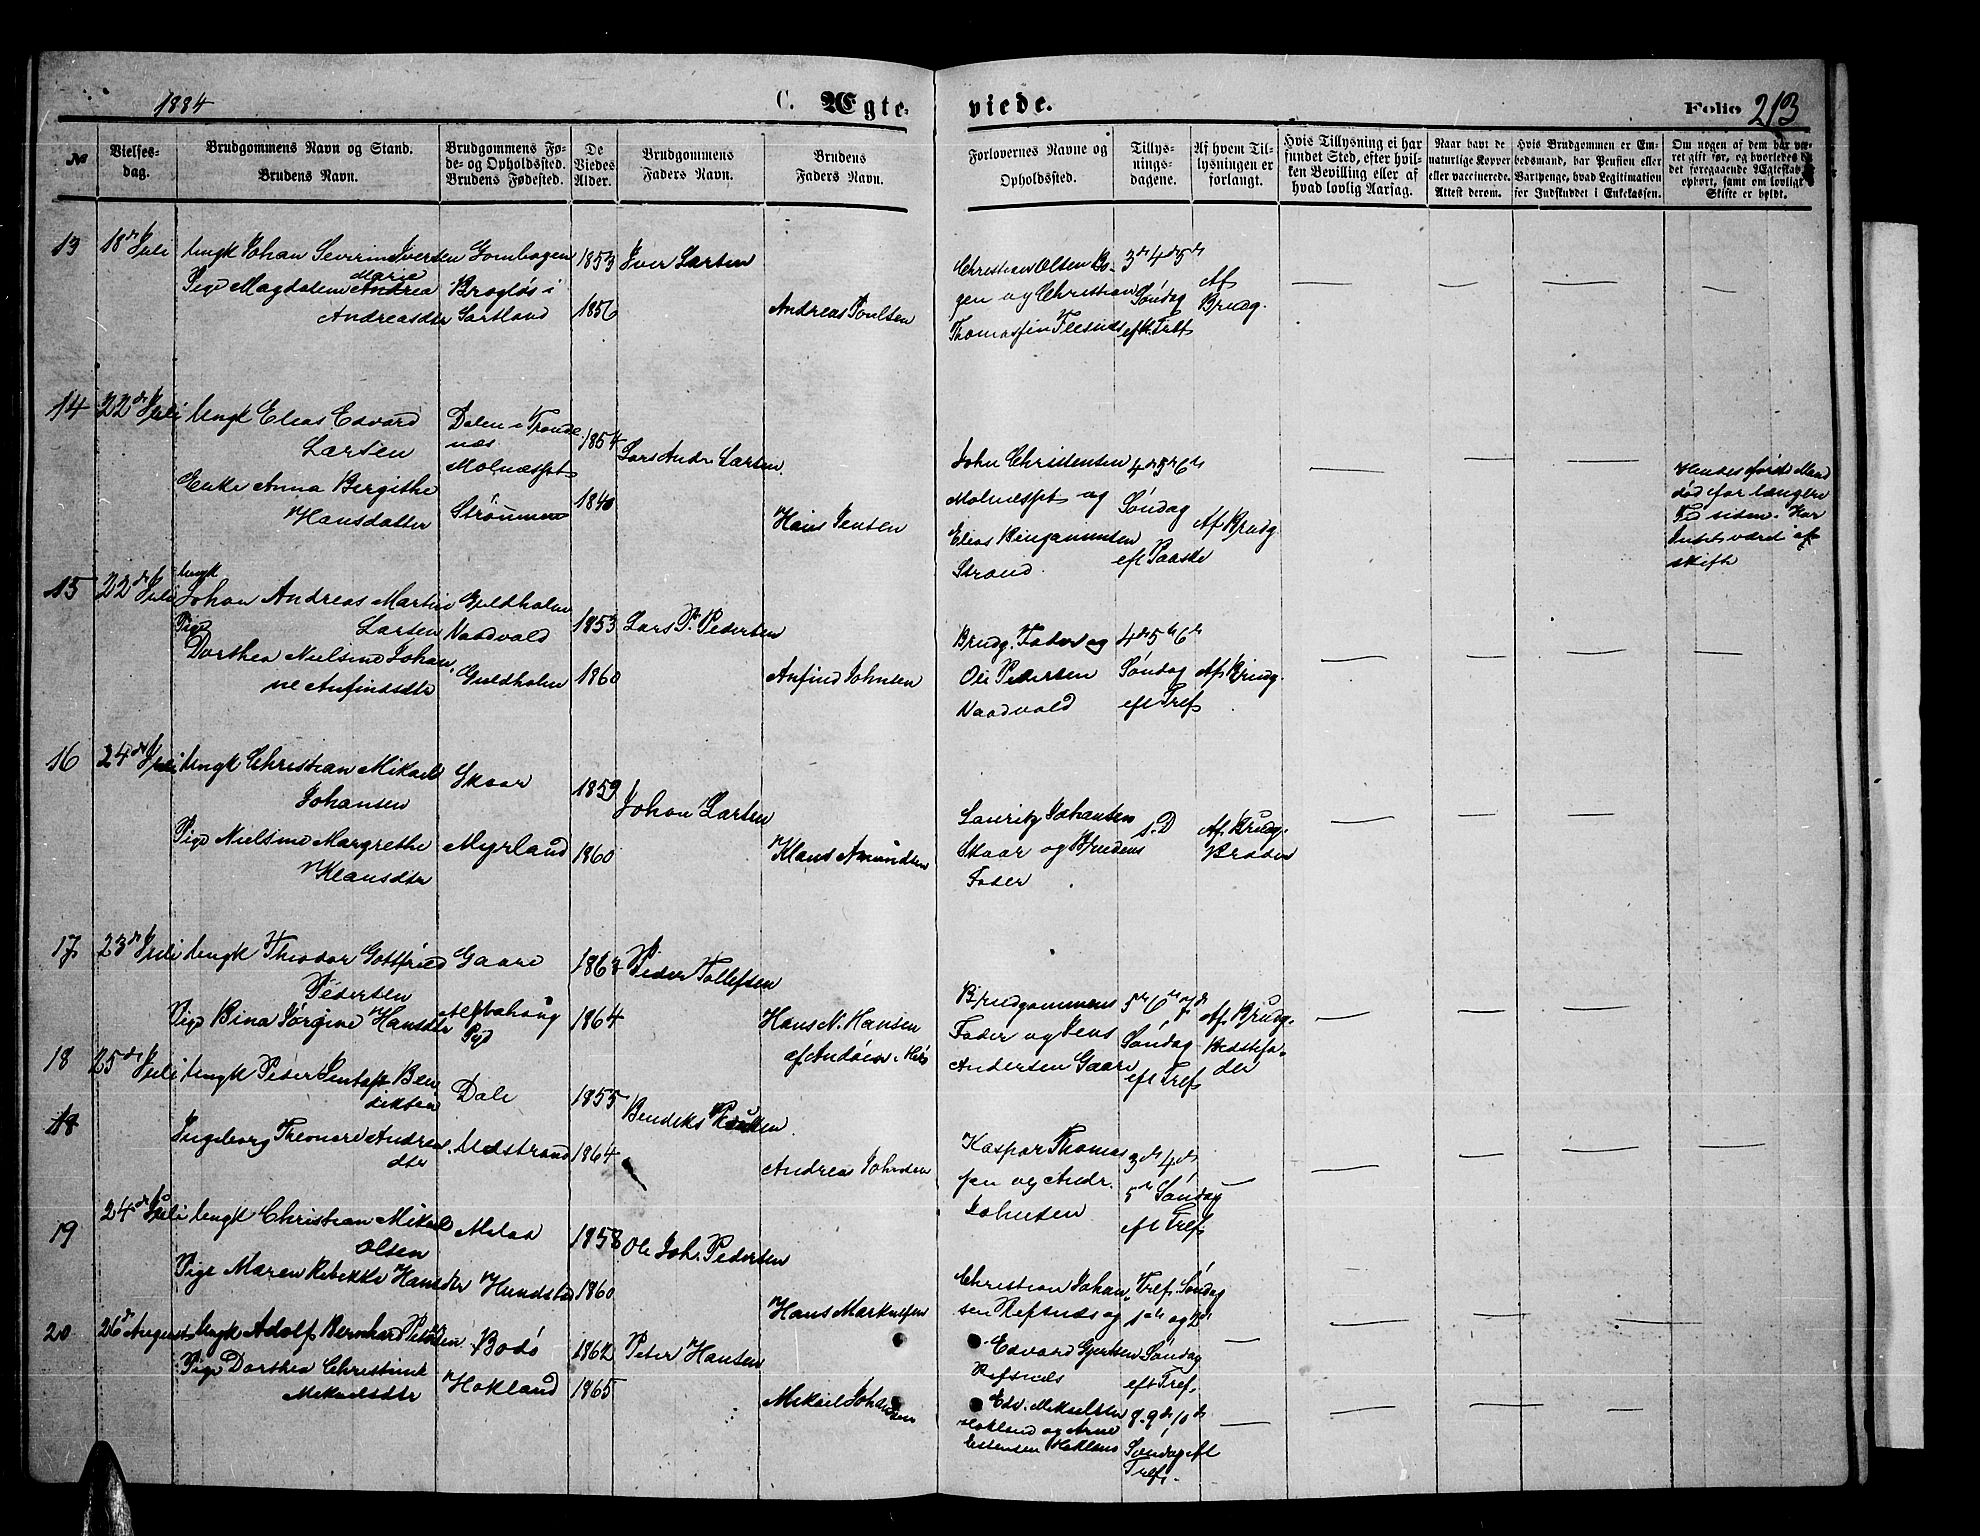 1884
C. Ægteviede.
Folio 213
No
Vielses-
dag.
Brudgommens Navn og Stand.
Brudens Navn.
Brudgommens Fø-
de- og Opholdssted.
Brudens Fødested.
De
Viedes
Alder.
Brudgommens
Faders Navn.
Brudens
Faders Navn.
Forlovernes Navne og
Opholdssted.
Tillys-
nings-
dagene.
Af hvem Til-
lysningen er
forlangt.
Hvis Tillysning ei har
fundet Sted, efter hvil-
ken Bevilling eller af
hvad lovlig Aarsag.
Naar havt de
naturlige Kopper
eller vaccinerede.
Attest derom.
Hvis Brudgommen er Em-
bedsmand, har Pension eller
Vartpenge, hvad Legitimation
for Indskuddet i Enkekassen.
Om nogen af dem har væ-
ret gift før, og hvorledes
det foregaaende Ægteskab
ophørt, samt om lovligt
Skifte er holdt.
13
18de Juli
Ungk Johan Severin Iversen
Pige Magdalena Marie
Andreasdtr
Sortland
1853
1856
Iver Larsen
Andreas Poulsen
Christian Olsen Bo-
gen og Christian
3de 4de 5te
Søndag
eft. Tref
Af
Brudg.
14
22de Juli
Ungk Elias Edvard
Larsen
Enke Anna Bergithe
Hansdatter
Dalen i Tronde
næs
Molnæsset
Strømmen
1854
1840
Lars Andr. Larsen
Hans Jensen
John Christensen
Molnæsset og
Elias Benjaminsen
Strand.
4de 5te 6te
Søndag
eft Paaske
Af Brudg
Hendes første Mand
død for længere
Tid siden. Har
Intet været at
skifte
15
22de Juli
Ungk
Johan Andreas Martin
Larsen
Pige
Dorthea Nielsine Johan
ne Anfindsdtr
Guldholm
Vaadvold
Guldholm
1853
1860
Lars P. Pedersen
Anfind Johnsen
Brudg. Fader og
Ole Pedersen
Vaadvold
4de 5te 6te
Søndag
eft Tref
Af Brudg.
16
24de Juli
Ungk Christian Mikael
Johansen
Pige Nielsine Margrethe
Klausdtr
Skaar
Myrland
1859
1860
Johan Larsen
Klaus Amundsen
Lauritz Johansen
Skaar og Brudens
Fader
s. D
Af Brudg.
Broder
17
23de Juli
Ungk Theodor Gottfried
Pedersen
Pige Bina Jørgine Hansdtr
Gaare
1863
1864
Peder Tollefsen
Hans N. Hansen
Brudgommens
Fader og Jens
Andersen Gaare
5te 6te 7de
Søndag
eft Tref
Af Brudg.
Bedstefa-
der
18
25de Juli
Ungk Peder Bene
diktsen
18
Ingeborg Theonore Andreas
dtr
Dale
Medstrand
1855
1864
Andreas Johnsen
Kaspar Thomas
sen og Andr.
Johnsen
3de 4de
5te Søndag
eft Tref
19
24de Juli
Ungk Christian Mikael
Olsen
Pige Maren Rebekka Hansdtr
Melaa
Hundstad
1858
1860
Ole Joh. Pedersen
Hans Markusen
Christian Johan
sen Refsnæs og
Edvard Gjertsen
Refsnæs
Tref. Søndag
1ste og 2de
Søndag
eft Tref.
20
26de August
Ungk Adolf Bernhard Petersen
Pige Dorthea Christine
Mikaelsdtr
Bodø
Hokland
1862
1865
Peter Hansen
Mikael Johansen
Edv. Mikaelsen
Hokland og Arne
Estensen Hokland
8. 9de 10de
Søndag eft
Tref.